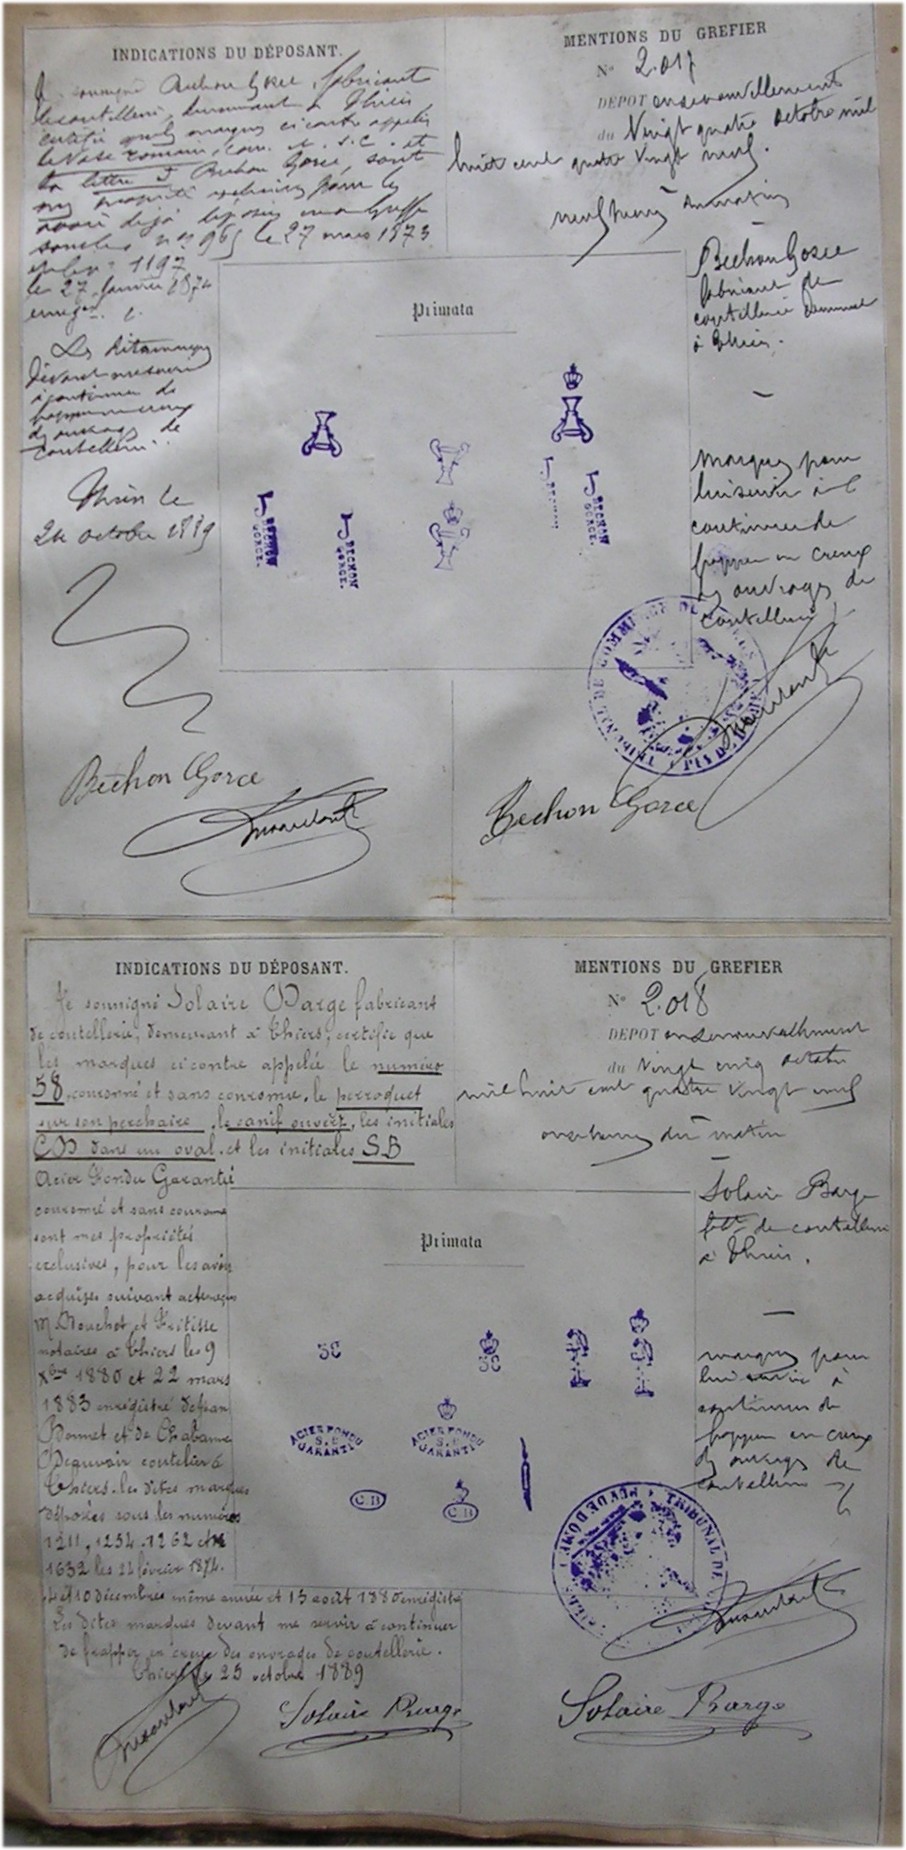 INDICATIONS DU DÉPOSANT.
soussigné Bechon Gorce, fabricant
de coutellerie, demeurant à Thiers
certifie que les marques ci contre appelées
le Vase romain, cour. et s. C. et
la lettre J Bechon Gorce, sont
ma propriété exclusive pour les
avoir déjà déposées au Greffe
sous les nos 965 le 27 mars 1873
et le no 1197
le 27 Janvier 1874
Les dites marques
devant me servir
à continuer de
frapper en creux
des ouvrages de
coutellerie
Thiers le
24 octobre 1889
Bechon Gorce
MENTIONS DU GREFIER
No 2.017
DEPOT en renouvellement
du Vingt quatre octobre mil
huit cent quatre vingt neuf.
neuf heures du matin
Bechon Gorce
fabricant de
coutellerie demeurant
à Thiers.
marques pour
lui servir à
continuer de
frapper en creux
des ouvrages de
coutellerie
Primata
J BECHON GORCE.
J BECHON GORCE.
J BECHON
J BECHON GORCE.
TRIBUNAL DE COMMERCE DE
PUY DE DOME
Bechon Gorce
INDICATIONS DU DÉPOSANT.
Je soussigné Solaire Barge fabricant
de coutellerie, demeurant à Thiers, certifie que
les marques ci contre appelée le numéro
58 couronné et sans couronne, le perroquet
sur son perchoire, le canif ouvert, les initiales
CB dans un oval, et les initiales SB
Acier Fondu Garanti
couronné et sans couronne
sont mes propriétés
exclusives, pour les avoir
acquises suivant actes reçus
notaires à Thiers les 9
Xbre 1880 et 22 mars
1883 enregistré de Jean
Bonnet et de Chabanne
Beauvoir coutelier à
Thiers. les dites marques
déposées sous les numéros
1211, 1254. 1262 et
1632 les 24 février 1874.
et 10 décembres même année et 13 août 1880 enregistré
Les dites marques devant me servir à continuer
de frapper en creux des ouvrages de coutellerie.
Thiers le 25 octobre 1889
Solaire Barge
MENTIONS DU GREFIER
No 2.018
DEPOT en renouvellement
du Vingt cinq octobre
mil huit cent quatre vingt neuf
onze heures du matin
Solaire Barge
fbt de coutellerie
à Thiers.
marques pour
lui servir à
continuer de
frapper en creux
des ouvrages de
coutellerie
Primata
58
58
ACIER FONDU
S. B
GARANTI
ACIER FONDU
S. B
GARANTI
C B
C B
TRIBUNAL DE
PUY DE DOME
Solaire Barge